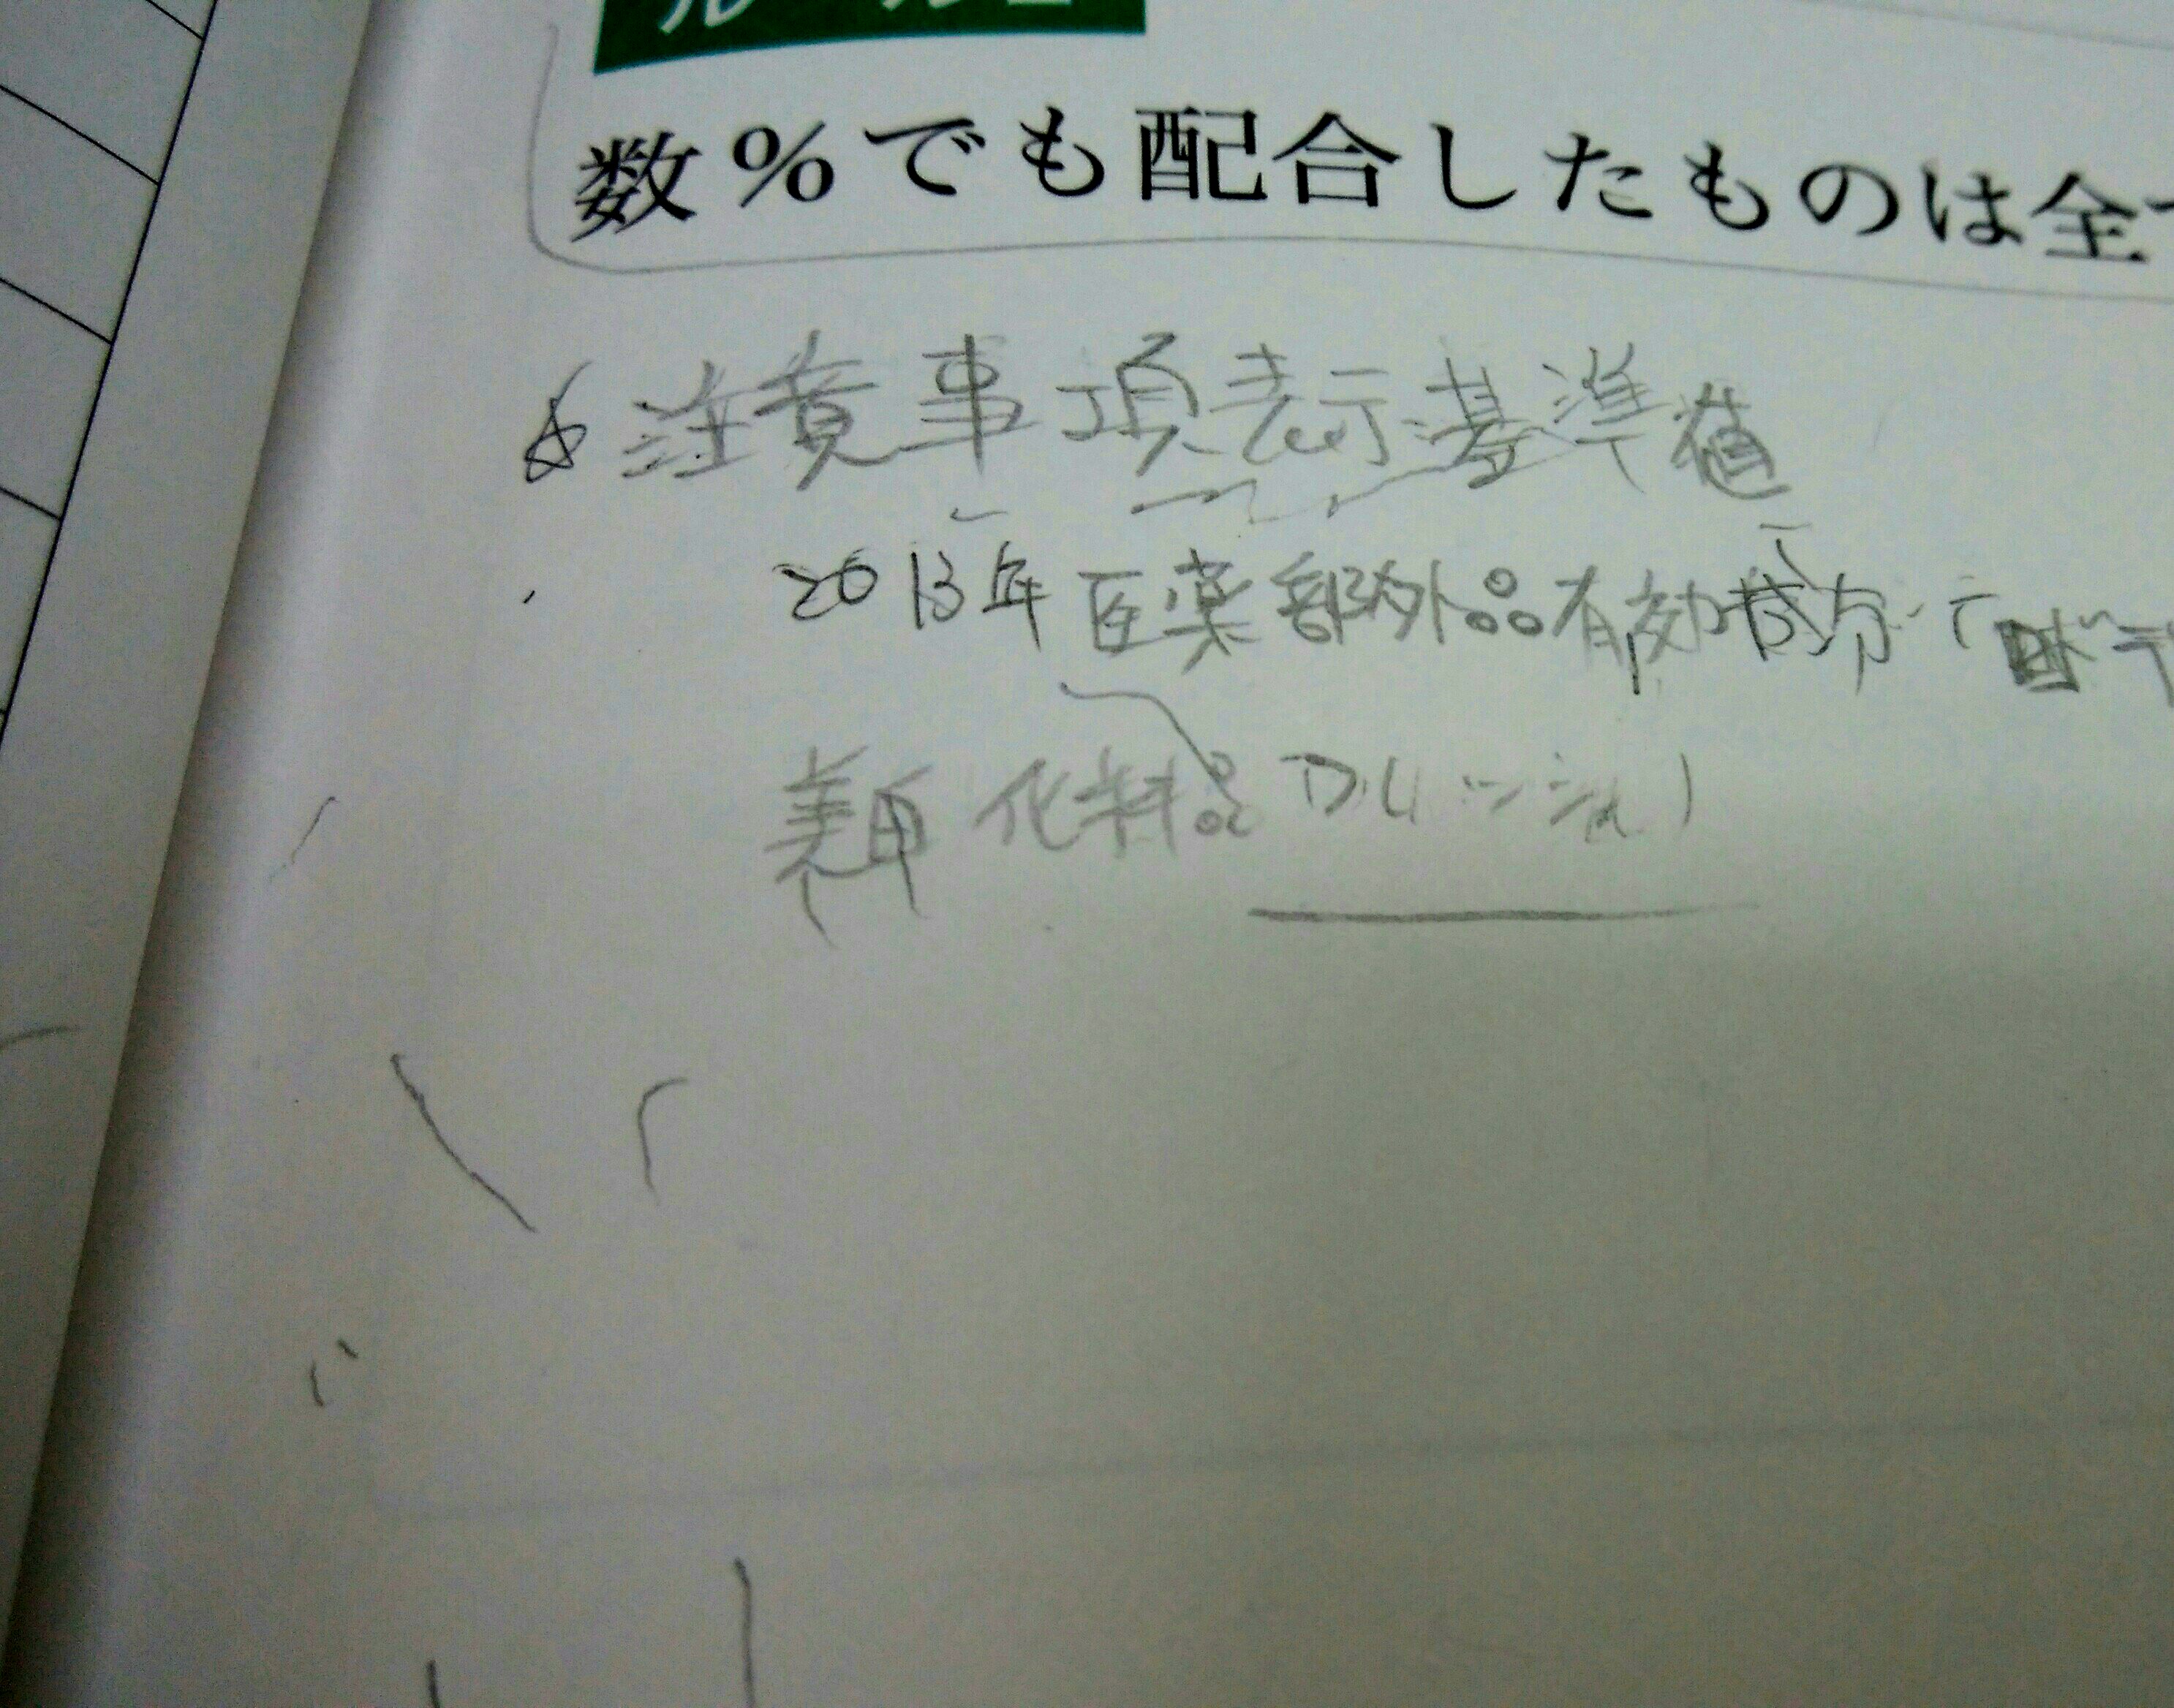 数%でも配合したものは全
☆注意事項表示基準値
2013年 医薬部外品有効成分
美白化粧品